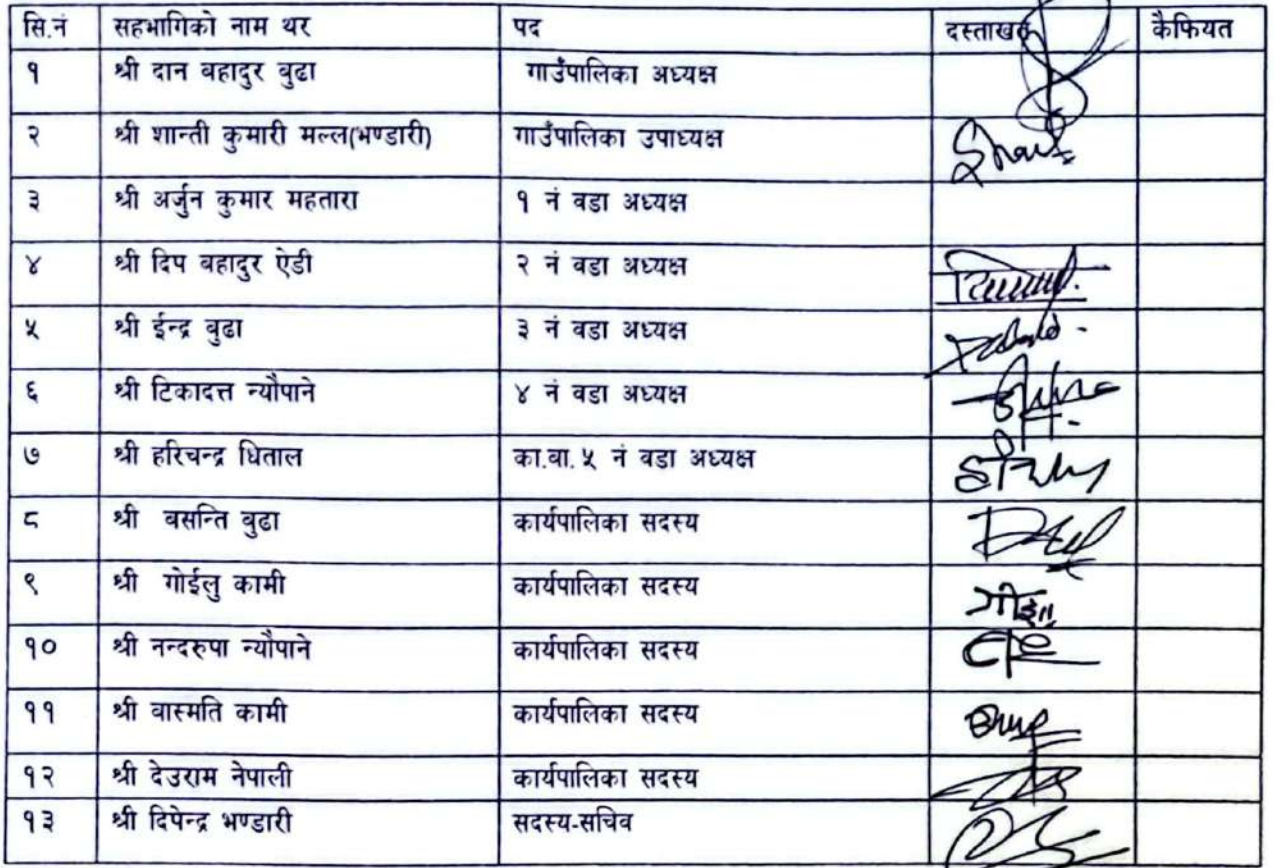 सि.नं सहभागिको नाम थर पद दस्ताखत कैफियत
१ श्री दान बहादुर बुढा गाउँपालिका अध्यक्ष
२ श्री शान्ती कुमारी मल्ल(भण्डारी) गाउँपालिका उपाध्यक्ष
३ श्री अर्जुन कुमार महतारा १ नं वडा अध्यक्ष
४ श्री दिप बहादुर ऐडी २ नं वडा अध्यक्ष
५ श्री ईन्द्र बुढा ३ नं वडा अध्यक्ष
६ श्री टिकादत्त न्यौपाने ४ नं वडा अध्यक्ष
७ श्री हरिचन्द्र धिताल का.वा. ५ नं वडा अध्यक्ष
८ श्री बसन्ति बुढा कार्यपालिका सदस्य
९ श्री गोईलु कामी कार्यपालिका सदस्य
१० श्री नन्दरुपा न्यौपाने कार्यपालिका सदस्य
११ श्री वास्मति कामी कार्यपालिका सदस्य
१२ श्री देउराम नेपाली कार्यपालिका सदस्य
१३ श्री दिपेन्द्र भण्डारी सदस्य-सचिव